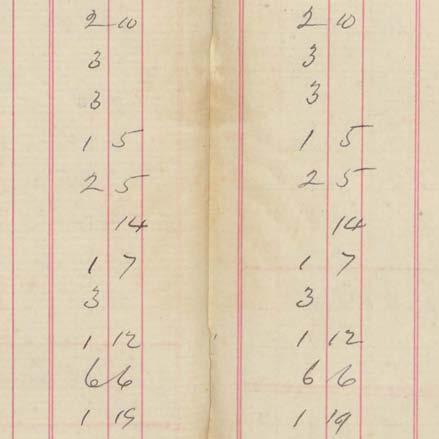 2 10 2 10
3 3
3 3
1 5 1 5
2 5 2 5
14 14
1 7 1 7
3 3
1 12 1 12
6 6 6 6
1 19 1 19